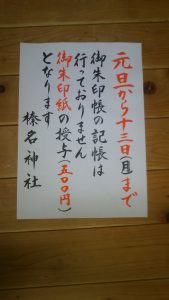 元旦から十三日(月)まで
御朱印帳の記帳は
行っておりません
御朱印紙の授与(五〇〇円)
となります
榛名神社